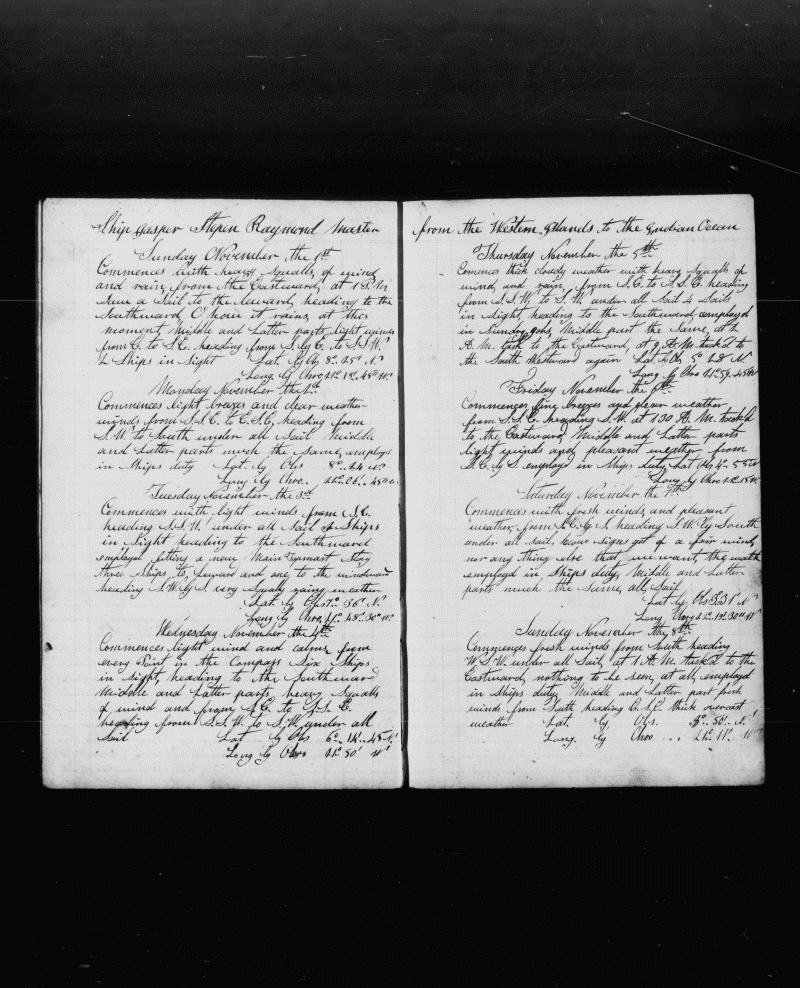 Ship Jasper Stepen Raymond Master
Sunday November the 1st
Commences with heavy Squalls, of wind
and rain, from the Eastward, at 1 P.M
Saw a Sail to the leward, heading to the
Southward, O how it rains, at this
moment, Middle and Latter parts, light winds
from E. to S.E. heading from S. by E. to S.S.W.
2 Ships in Sight Lat. by Obs 8°.. 28' N.
Long. by Chro 22°.. 18'.. 45" W.
Monday November the 2d
Commences light breezes and clear weather
winds from S.S.E. to E.S.E, heading from
S.W. to South under all Sail Middle
and Latter parts much the Same, employd
in Ships duty Lat. by Obs 8°.. 24' N.
Long by Chro. 22°.. 06'.. 45" W.
Tuesday November the 3d
Commences with light winds from S.E.
heading S.S.W. under all Sail Ships
in Sight heading to the Southward
employed fitting a new Main Topmast Stay
three Ships to Leward and one to the windward
heading S.W. by S. very Squally rainy weather
Lat. by Obs 7°. 36' N.
Long by Chro, 21°.. 48'.. 30" W.
Wednesday November the 4th
Commences light wind and calms, from
every Point in the Compass Six Ships
in Sight, heading to the Southward
Middle and Latter parts, heavy Squalls
of wind and from S.E. to S.S.E.
heading from S.S.W. to S.W. under all
Sail Lat by Obs 6°.. 14'.. 45" N.
Long by Chro 21°. 50' W.
from the Western Islands to the Indian Ocean
Thursday November the 5th
Comences thick cloudy weather with heavy Squalls of
wind, and rain, from S.E. to S.S.E. heading
from S.S.W. to S.W. under all Sail 4 Sails
in Sight, heading to the Southward, employed
in Sundry jobs, Middle part the Same, at 2
A.M. tack to the Eastward, at 9 A.M. tack'd to
the South Westward again Lat by Obs 5° 28' N
Long by Chro 21°. 59'. 45" W
Friday November the 6th
Commences fine breezes and clear weather
from S.S.E. heading S.W. at 130 A.M. tack'd
to the Eastward, Middle and Latter parts
light winds and pleasant weather from
S.E. by S. employd in Ships duty Lat Obs 4°.. 55' N
Long by Chro 22°. 15' W.
Saturday November the 7th
Commences with fresh winds, and pleasant
weather, from S.E. by S. heading S.W. by South
under all Sail, know signs yet of a fair wind,
nor any thing else that we want, the watch
employd in Ships duty, Middle and Latter
parts much the Same, all Sail
Lat by Obs 3°. 31' N
Long by Chro 22°. 19'. 30" W
Sunday November the 8th
Commences fresh winds from South heading
W.S.W. under all Sail, at 1 A.M. tack'd to the
Eastward, nothing to be Seen, at all, employd
in Ships duty, Middle and Latter part fresh
winds from South heading E.S.E. thick overcast
weather Lat. by Obs. 3°.. 50'.. N.
Long. by Chro ... 21°.. 11'.. W